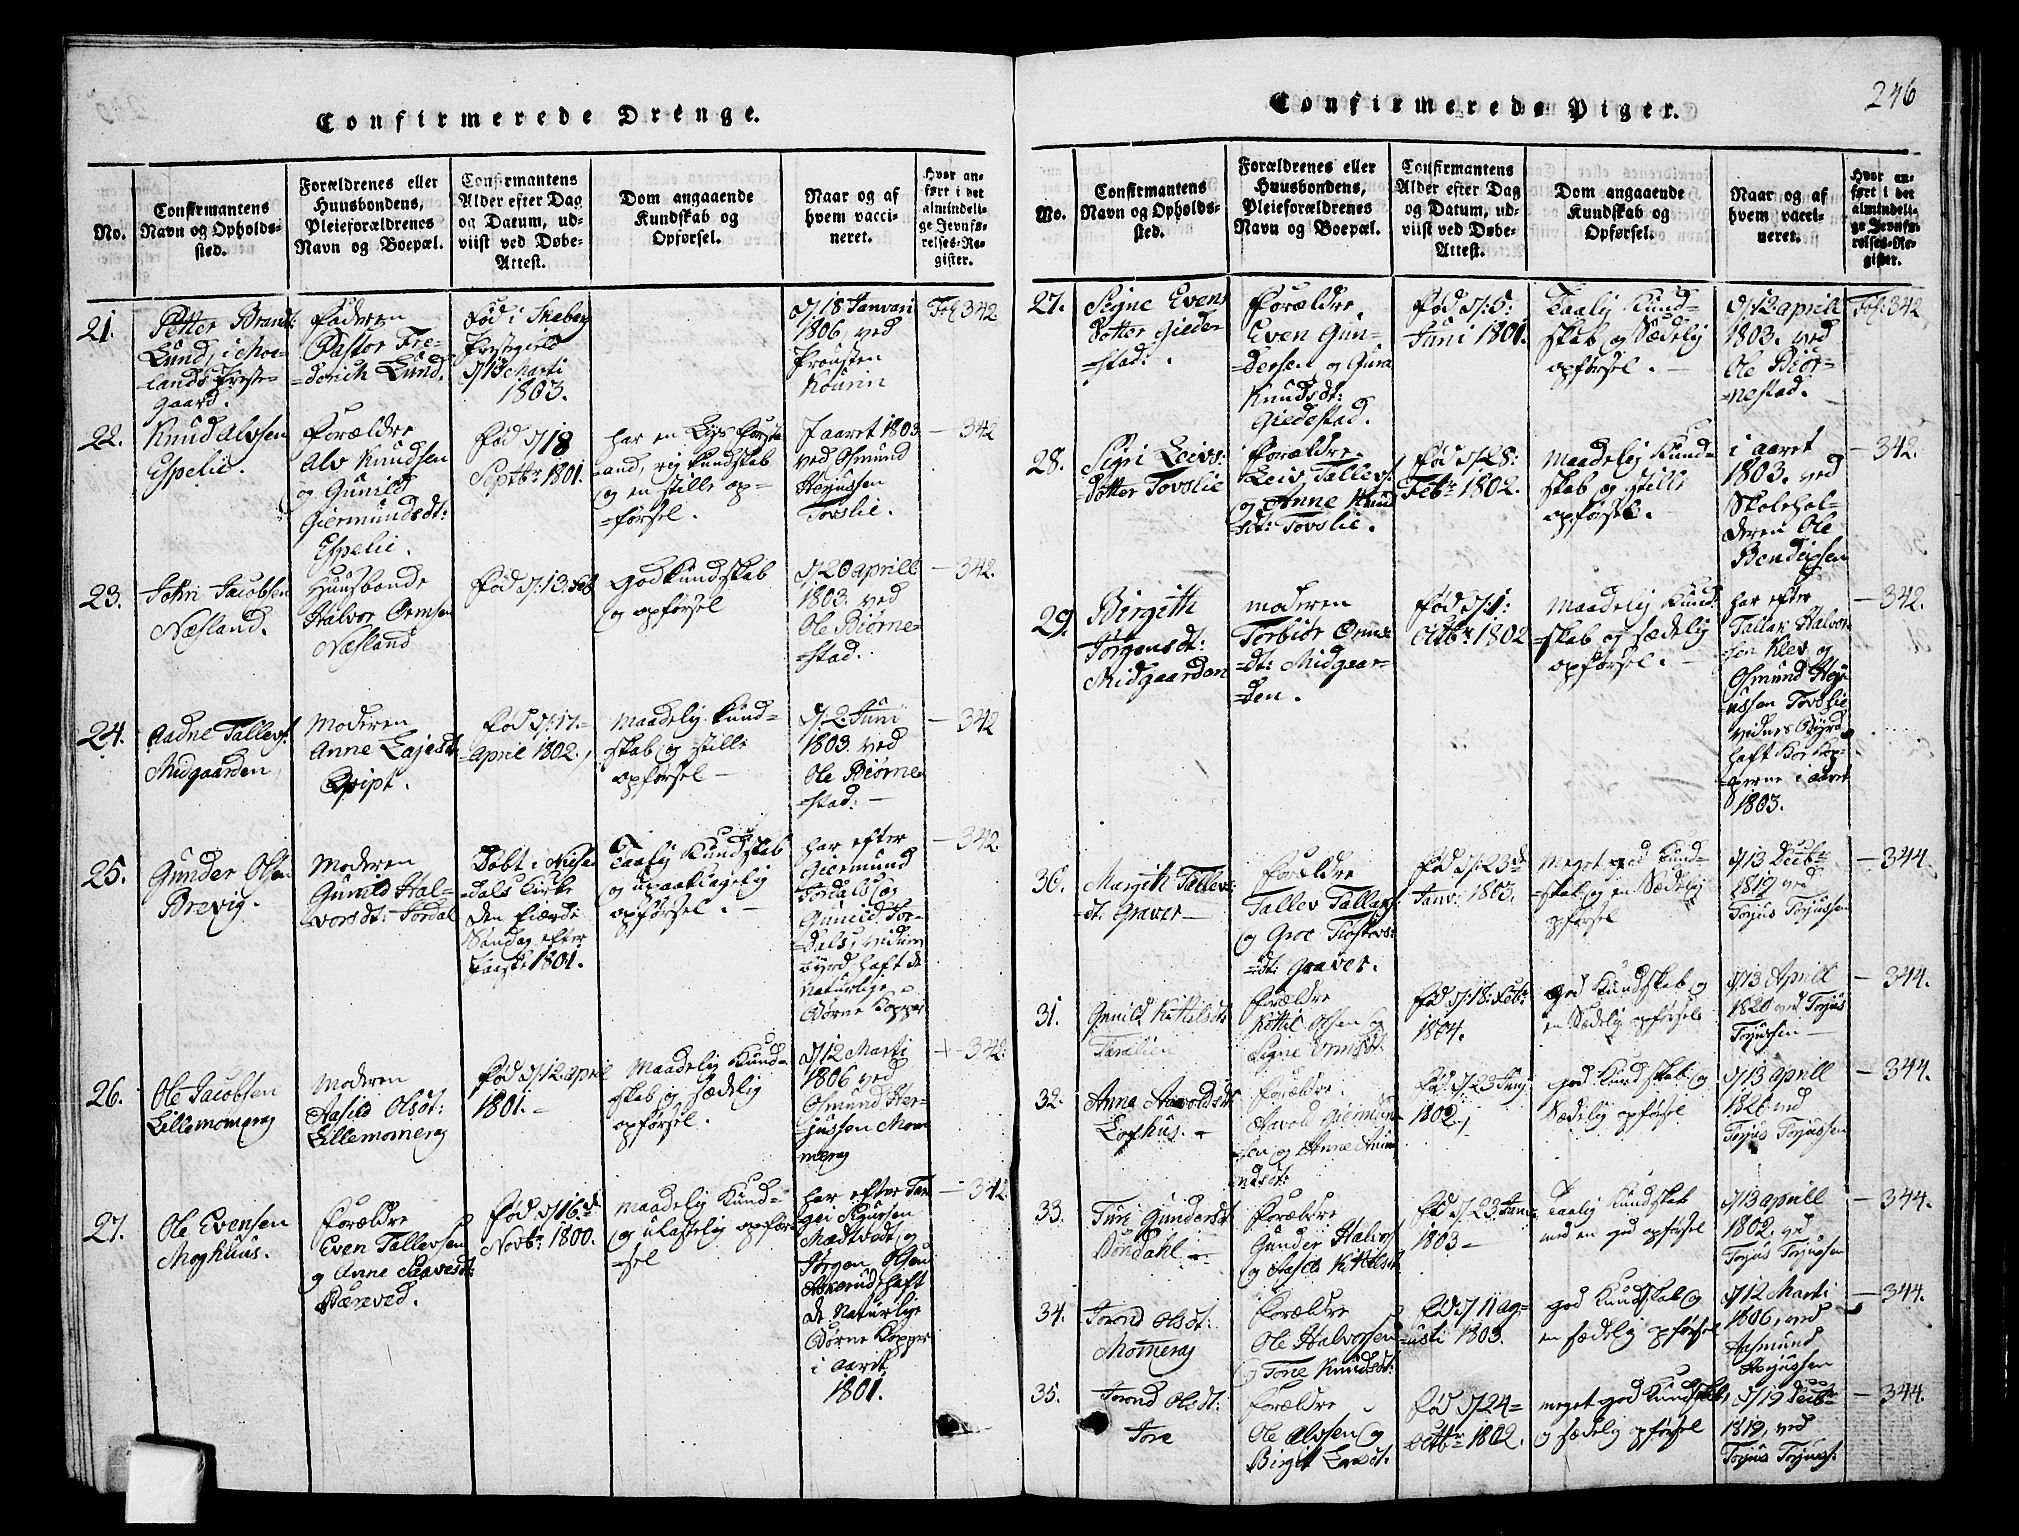 246
Confirmerede Drenge.
No.
Confirmantens
Navn og Opholds-
sted.
Forældrenes eller
Huusbondens,
Pleieforældrenes
Navn og Boepæl.
Confirmantens
Alder efter Dag
og Datum, ud-
viist ved Døbe-
Attest.
Dom angaaende
Kundskab og
Opførsel.
Naar og af
hvem vacci-
neret.
Hvor an-
ført i det
almindeli-
ge Jevnfø-
relses-Re-
gister.
21.
Petter Brandt
Lund, i Moe-
lands Preste-
gaard.
Faderen
Pastor Fre-
derich Lund.
Fød i
Prestegield
d/13 Marti
1803.
d/18 Januari
1806 ved
Prousten
Fol 342
22.
Knud Alvsen
Espelie.
Forældre
Alv Knudsen
og Gunild
Giermundsdt:
Espelie.
Fød d/18
Septbr 1801.
har en
kundskab
og en stille op-
=førsel.
I aaret 1803
ved Osmund
Herjussen
Tovslie.
342
23.
John Jacobsen
Næsland.
Huusbonde
Halvor Ormsen
Næsland
Fød d/:13: Feb
God kundskab
og opførsel
d/20 aprill
1803. ved
Ole Biørne=
=stad.
342.
24.
Aadne Tallevs:
Midgaarden
Moderen
Anne Lajesdt:
Qvipt.
Fød d/:17:=
April 1802.
Maadelig kund=
skab og stille
opførsel –
d/2. Juni
1803. ved
Ole Biørne=
=stad: –
342
25.
Gunder Olsen
Brevig.
Moderen
Gunild Hal=
vorsdt: Tørdal
Døbt i Nissedals Kirke
den fierde
Søndag efter
Paaske 1801.
Taalig Kundskab
og upaaklagelig
opførsel. –
har efter
Giermund
og
Gunild Tør=
dals, vidnesbyrd haft de
Naturlige
Børne Kopper
342
26.
Ole Jacobsen
Lillemomerag
Moderen
Aasild Olsdt:
Lillemomerag
Fød d/:12. april
1801. –
Maadelig Kund=
skab og Sædelig
opførsel.
d/12 Marti
1806 ved
Osmund Her=
jussen Mom
merag
342.
27.
Ole Evensen
Moghuus.
Forældre
Even Tallevsen
og Anne Saavesdt:
Fød d/16: d
Novbr 1800.
maadelig Kund=
og ulastelig opfør=
=sel
har efter
og
Jørgen Olsen
haft
de Naturlige
Børne Kopper
i aaret
1801.
342
Confirmerede Piger.
No.
Confirmantens
Navn og Opholds-
sted.
Forældrenes eller
Huusbondens,
Pleieforældrenes
Navn og Boepæl.
Confirmantens
Alder efter Dag
og Datum, ud-
viist ved Døbe-
Attest.
Dom angaaende
Kundskab og
Opførsel.
Naar og af
hvem vacci-
neret.
Hvor an-
ført i det
almindeli-
ge Jevnfø-
relses-Re-
gister.
27.
Signe Evens
dotter Giede=
=stad.
Forældre,
Even Gun=
dersen og Gura
Knudsdt:
Giedestad.
Fød d/:5:
Juni 1801.
Taalig Kund=
skab og Sædelig
opførsel. –
d/12 april
1803. ved
Ole Biør=
=nestad.
Fol: 342
28.
Sigri Leivs:
dotter Tovslie
Forældre.
Leiv Tallevs:
og Anne Knud
sdt: Tovslie.
Fød d/:28:
Febr 1802.
Maadelig Kund=
skab og stille
opførsel.
i aaret
1803. ved
Skolehol=
deren Ole
Bendixsen
342.
29.
Birgith
Jørgensdt:
Midgaarden
moderen
Torbiør Orms
=dt: Midgaar=
den.
Fød d/:1:
Octbr 1802
Maadelig Kund=
=skab og sædelig
opførsel. –
har efter
Tallak Halvor
sen Klev og
Osmund Herj
ussen Tovslie
vidnes Byrd
haft Koe Kop=
perne i aaret
1803.
342.
30.
Margith Tallevs:
dt. Graver –
Forældre
Tallev Tallaks:
og Groe
=dt: Graver.
Fød d/:23 d
Janv: 1803.
Meget god Kund=
=skab og en Sædelig
opførsel
d/13 Decbr
1819 ved
Torjus Torjussen
344.
31.
Gunild Kittilsdt:
Forældre
Kittil Olsen og
Signe Ormsdt:
Fød d/:18: Feb:
1804.
god Kundskab og
en Sædelig opførsel
d/13 Aprill
1820 ved Torjus
Torjussen –
344.
32.
Anna Aavoldsdt:
Lofhus. –
Forældre.
Aavold Giermun
sen og Anne Amu
ndsdt:
Fød: d/23 Janj
1802.
god Kundskab og
Sædelig opførsel
d/13 aprill
1820 ved
Torjus Torjussen
344.
33.
Turi Gundersdt:
Forældre
Gunder Halvors
og Aasild Kittilsdt:
Fød d/23 Janu:
1803 –
Taalig Kundskab
med en god opførsel
d/13 aprill
1802. ved
Torjus Torjusen
344.
34.
Torond Olsdt:
Momerag
Forældre
Ole Halvorsen
og Tone Knudsdt:
Fød d/11 Aug=
=usti 1803.
god Kundskab og
en sædelig opførsel
d/12 Marti
1806, ved
Aasmund
Herjussen
344.
35.
Torond Olsdt:
Tore
Forældre
Ole Alvsen og
Birgit
Fød d/24=
Octbr 1802.
meget god Kundskab,
og sædelig opførsel
d/19 Decbr
1819, ved
Torjus Torjuss:
344.